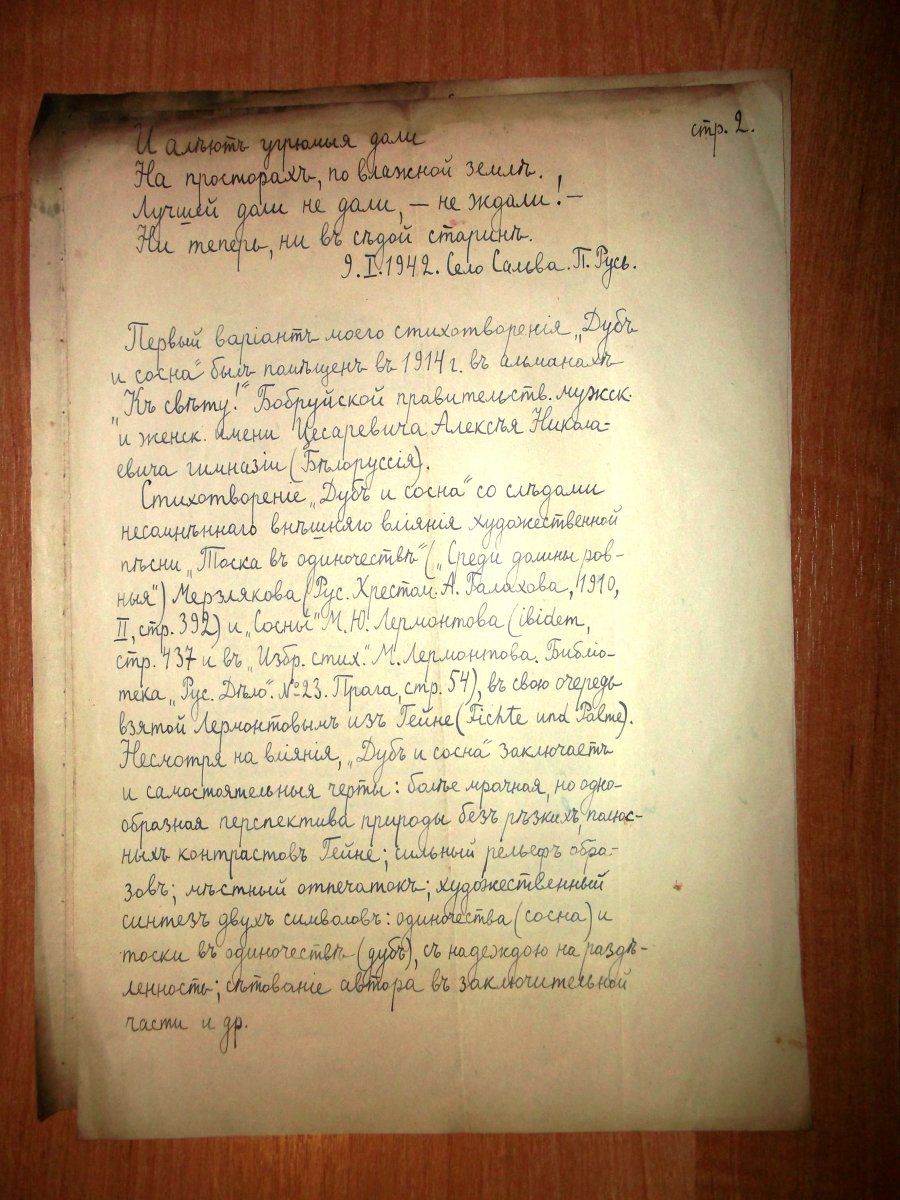 стр. 2.
И алѣютъ угрюмыя дали
На просторахъ, по влажной землѣ.
Лучшей доли не дали, — не ждали! —
Ни теперь, ни въ сѣдой старинѣ.
9.I.1942. Село Сальва. П. Русь.
Первый варіантъ моего стихотворенія „Дубъ
и сосна" былъ помѣщенъ въ 1914 г. въ альманахѣ
„Къ свѣту!" Бобруйской правительств. мужск.
и женск. имени Цесаревича Алексѣя Никола-
евича гимназіи (Бѣлоруссія).
Стихотвореніе „Дубъ и сосна" со слѣдами
несомнѣннаго внѣшняго вліянія художественной
пѣсни „Тоска въ одиночествѣ" („Среди долины ров-
ныя") Мерзлякова (Рус. Хрестом. А. Галахова, 1910,
II, стр. 392) и „Сосны" М. Ю. Лермонтова (ibidem,
стр. 437 и въ „Избр. стих." М. Лермонтова. Библіо-
тека „Рус. Дѣло". №23. Прага, стр. 54), въ свою очередь
взятой Лермонтовымъ изъ Гейне (Fichte und Palme).
Несмотря на вліянія, „Дубъ и сосна" заключаетъ
и самостоятельныя черты: болѣе мрачная, но одно-
образная перспектива природы безъ рѣзкихъ, полюс-
ныхъ контрастовъ Гейне; сильный рельефъ обра-
зовъ; мѣстный отпечатокъ; художественный
синтезъ двухъ символовъ: одиночества (сосна) и
тоски въ одиночествѣ (дубъ), съ надеждою на раздѣ-
ленность; сѣтованіе автора въ заключительной
части и др.